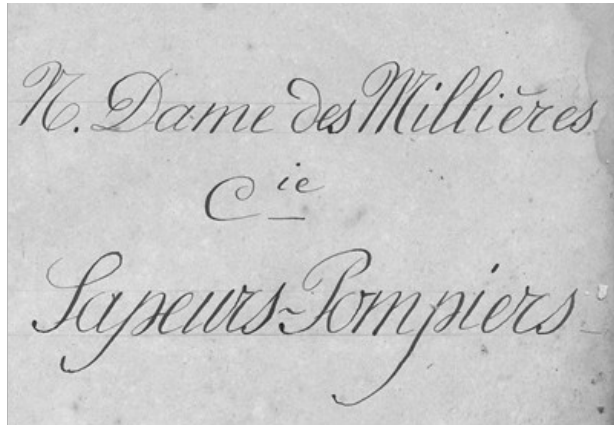 N. Dame des Millières
Cie
Sapeurs-Pompiers